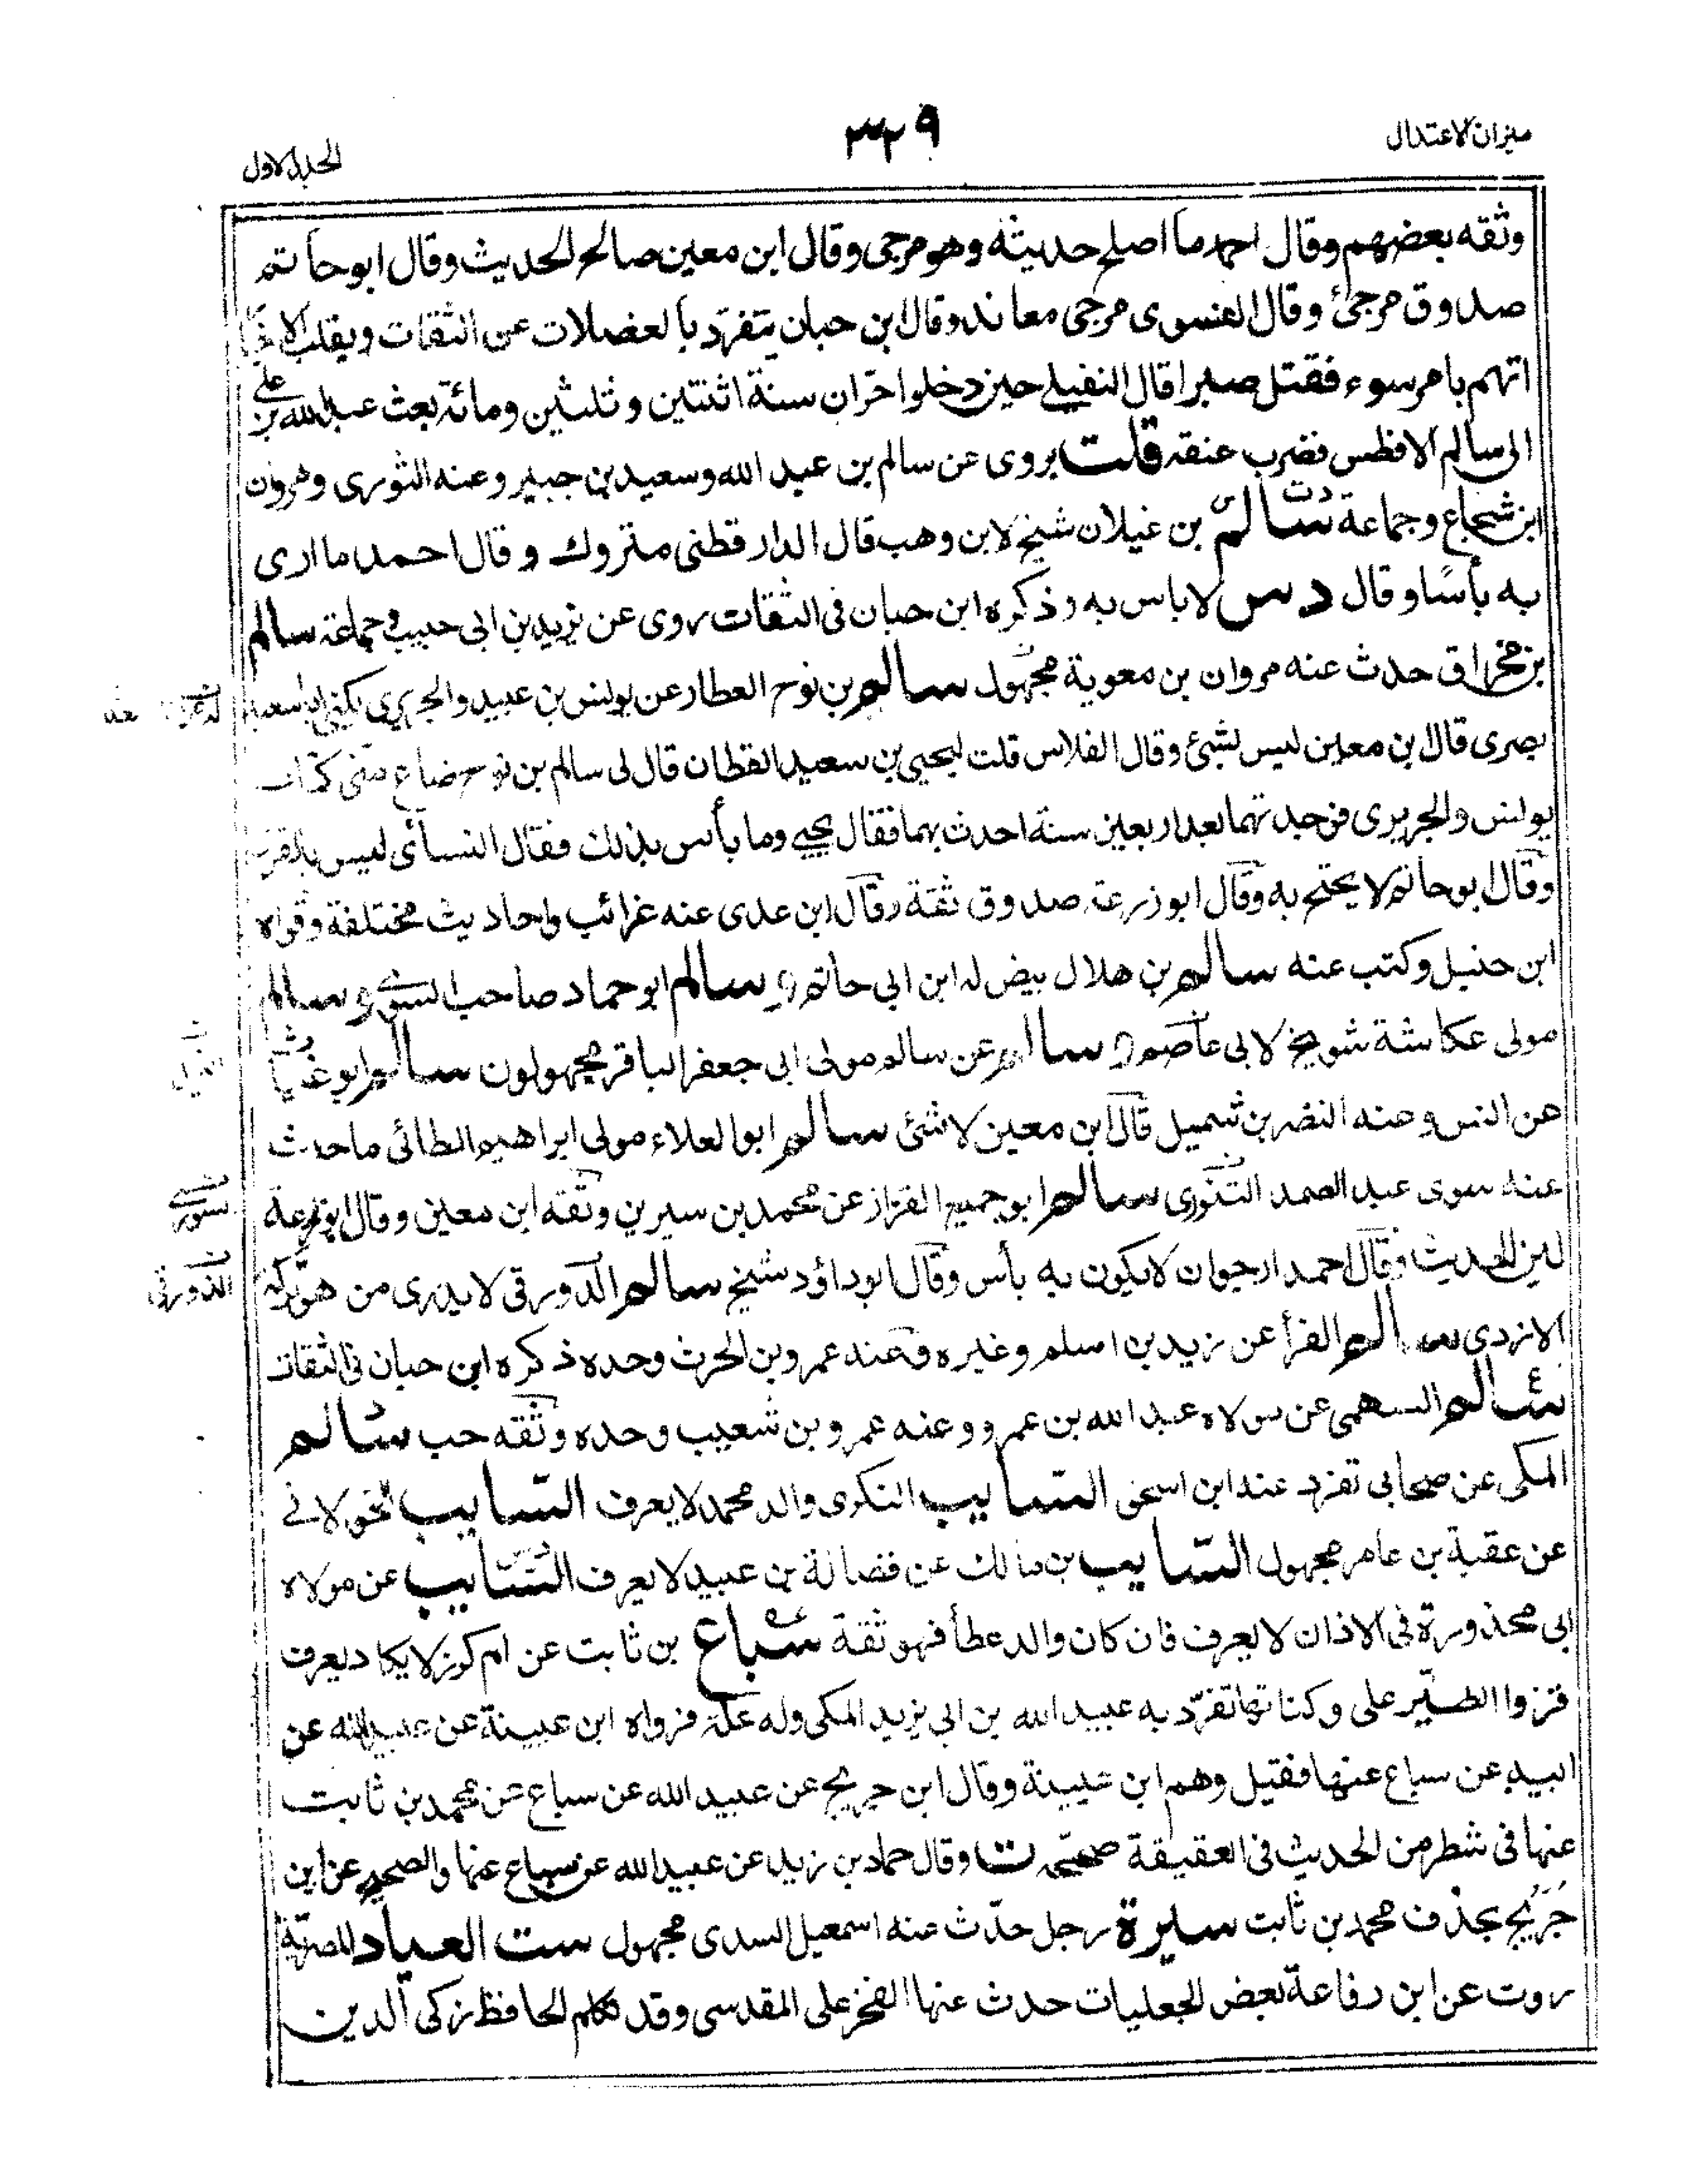 ميزان الاعتدال
٣٢٩
الجلد الاول
وثقه بعضهم وقال احمد ما اصلح حديثه وهو مرجى وقال ابن معين صالح الحديث وقال ابو حاتم
صدوق مرجئ وقال الفسوى مرجى معاند وقال ابن حبان يتفرّد بالعضلات عن الثقات ويقلب الاخبار
اتهم بامر سوء فقتل صبرا قال النفيلى حين دخلوا حرّان سنة اثنتين وثلثين ومائة بعث عبد الله بن على
الى سالم الافطس فضرب عنقه قلت يروى عن سالم بن عبد الله وسعيد بن جبير وعنه الثورى وهرون
ابن شجاع وجماعة سالم بن غيلان شيخ لابن وهب قال الدارقطنى متروك وقال احمد ما ارى
به بأسًا وقال د س لا باس به وذكره ابن حبان فى الثقات روى عن يزيد بن ابى حبيب وجماعة سالم
بن مخراق حدث عنه مروان بن معوية مجهول سالم بن نوح العطار عن يونس بن عبيد والجريرى يكنى ابا سعيد
بصرى قال ابن معين ليس بشئ وقال الفلاس قلت ليحيى بن سعيد القطان قال لى سالم بن نوح ضاع منى كتاب
يونس والجريرى فوجدتهما بعد اربعين سنة احدث بهما فقال يحيى وما بأس بذلك فقال النسائى ليس بالقوى
وقال ابو حاتم لا يحتج به وقال ابو زرعة صدوق ثقة وقال ابن عدى عنه غرائب واحاديث مختلفة وقواه
ابن حنبل وكتب عنه سالم بن هلال بيض له ابن ابى حاتم و سالم ابو حماد صاحب السدى و سالم
مولى عكاشة شويخ لابى عاصم و سالم عن سالم مولى ابى جعفر الباقر مجهولون سالم ابو غياث
عن انس وعنه النضر بن شميل قال ابن معين لا شئ سالم ابو العلاء مولى ابراهيم الطائى ما حدث
عنه سوى عبد الصمد التنورى سالم ابو جميع القزاز عن محمد بن سيرين وثقه ابن معين وقال ابو زرعة
لين الحديث وقال احمد ارجوان لا يكون به بأس وقال ابو داؤد شيخ سالم الدورقى لا يدرى من هو تركه
الازدى سالم الفرأ عن زيد بن اسلم وغيره وعنه عمرو بن الحرث وحده ذكره ابن حبان فى الثقات
سالم السهمى عن مولاه عبد الله بن عمرو وعنه عمرو بن شعيب وحده وثقه حب سالم
المكى عن صحابى تفرد عنه ابن اسحق السايب النكرى والد محمد لا يعرف السايب الخولانى
عن عقبة بن عامر مجهول السايب بن مالك عن فضالة بن عبيد لا يعرف السايب عن مولاه
ابى محذورة فى الاذان لا يعرف فان كان والد عطأ فهو ثقة سباع بن ثابت عن ام كرز لا يكاد يعرف
قزوا الطير على وكناتها تفرّد به عبيد الله بن ابى يزيد المكى وله علة فرواه ابن عيينة عن عبيد الله عن
ابيه عن سباع عنها فقيل وهم ابن عيينة وقال ابن جريج عن عبيد الله عن سباع عن محمد بن ثابت
عنها فى شطر من الحديث فى العقيقة صححه ت وقال حماد بن زيد عن عبيد الله عن سباع عنها والصحيح عن ابن
جُرَيج بحذف محمد بن ثابت سبرة رجل حدّث عنه اسمعيل السدى مجهول ست العباد المصرية
روت عن ابن رفاعة بعض الجعليات حدث عنها الفخر على المقدسى وقد تكلم الحافظ زكى الدين
التنورى
الدورقى